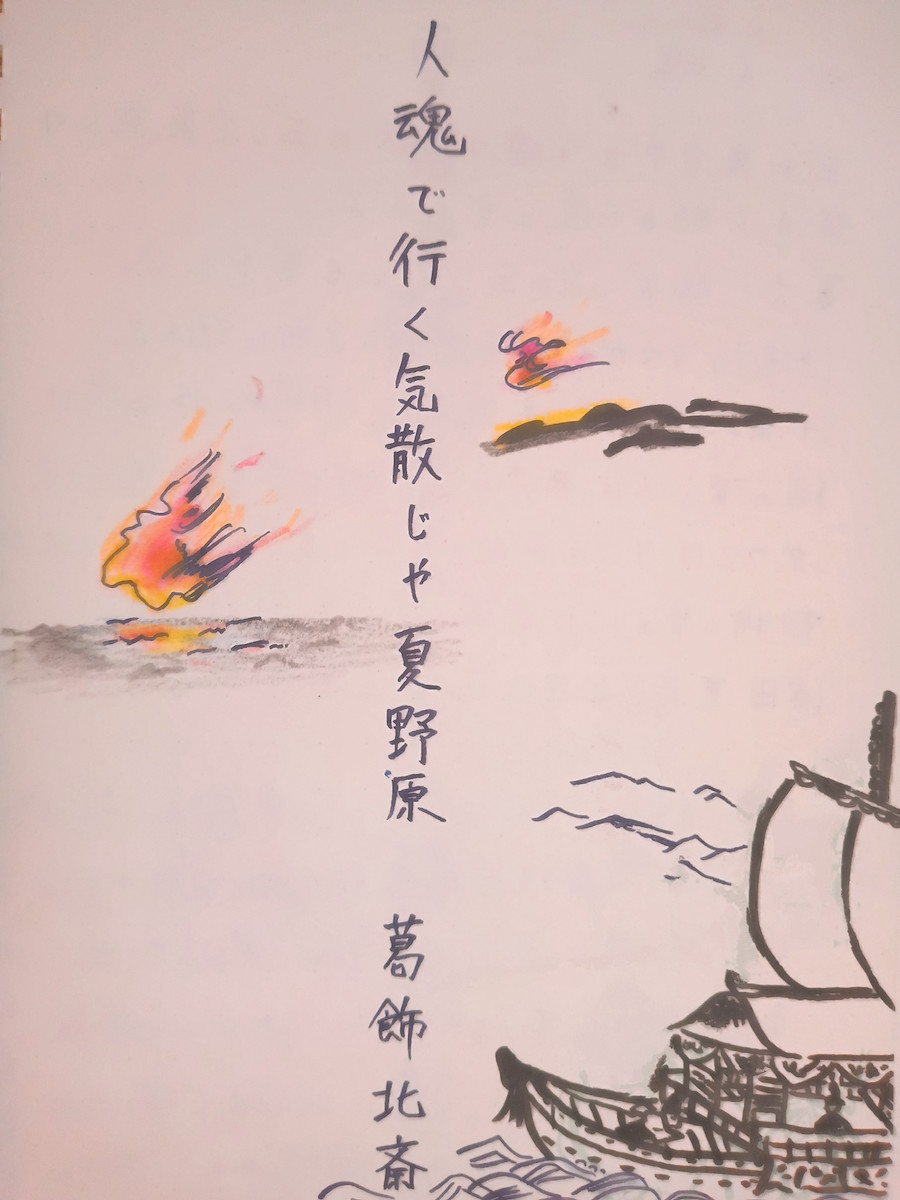 人魂で行く気散じゃ夏野原　葛飾北斎